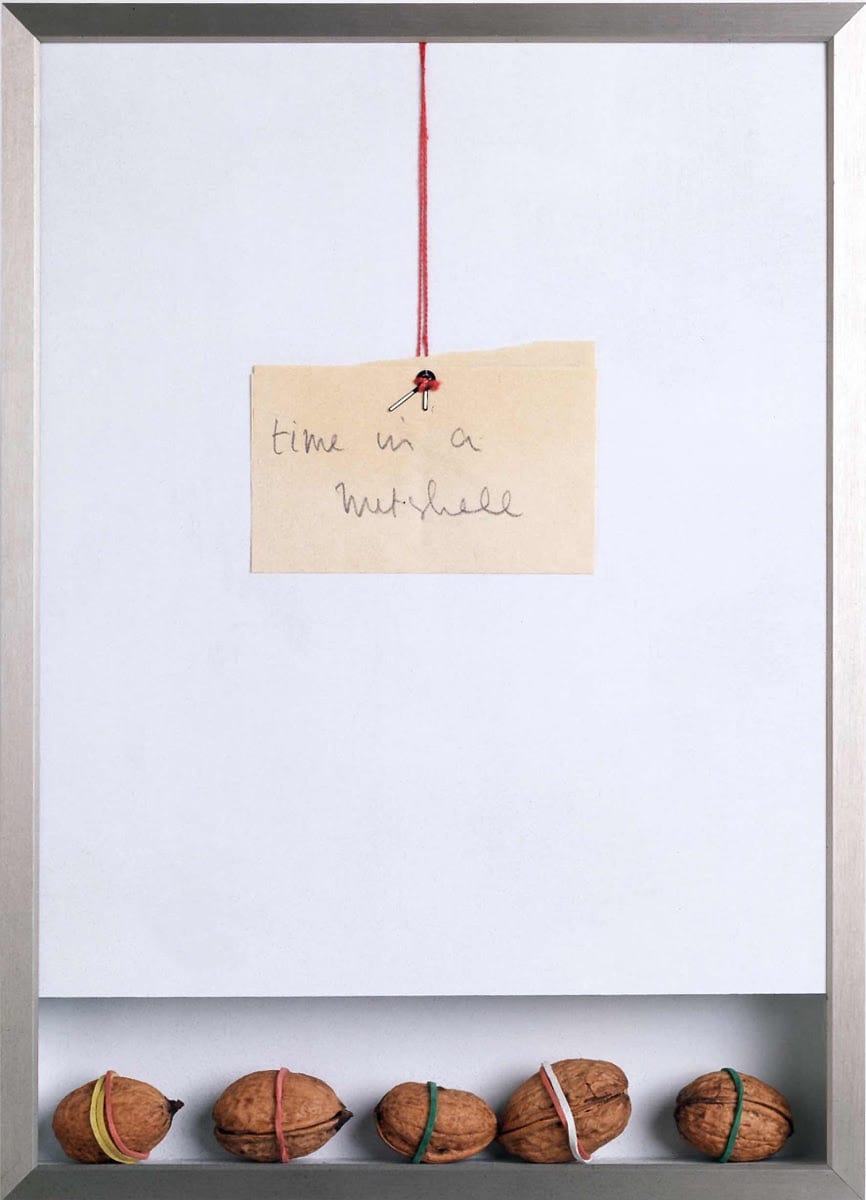 time in a
nutshell